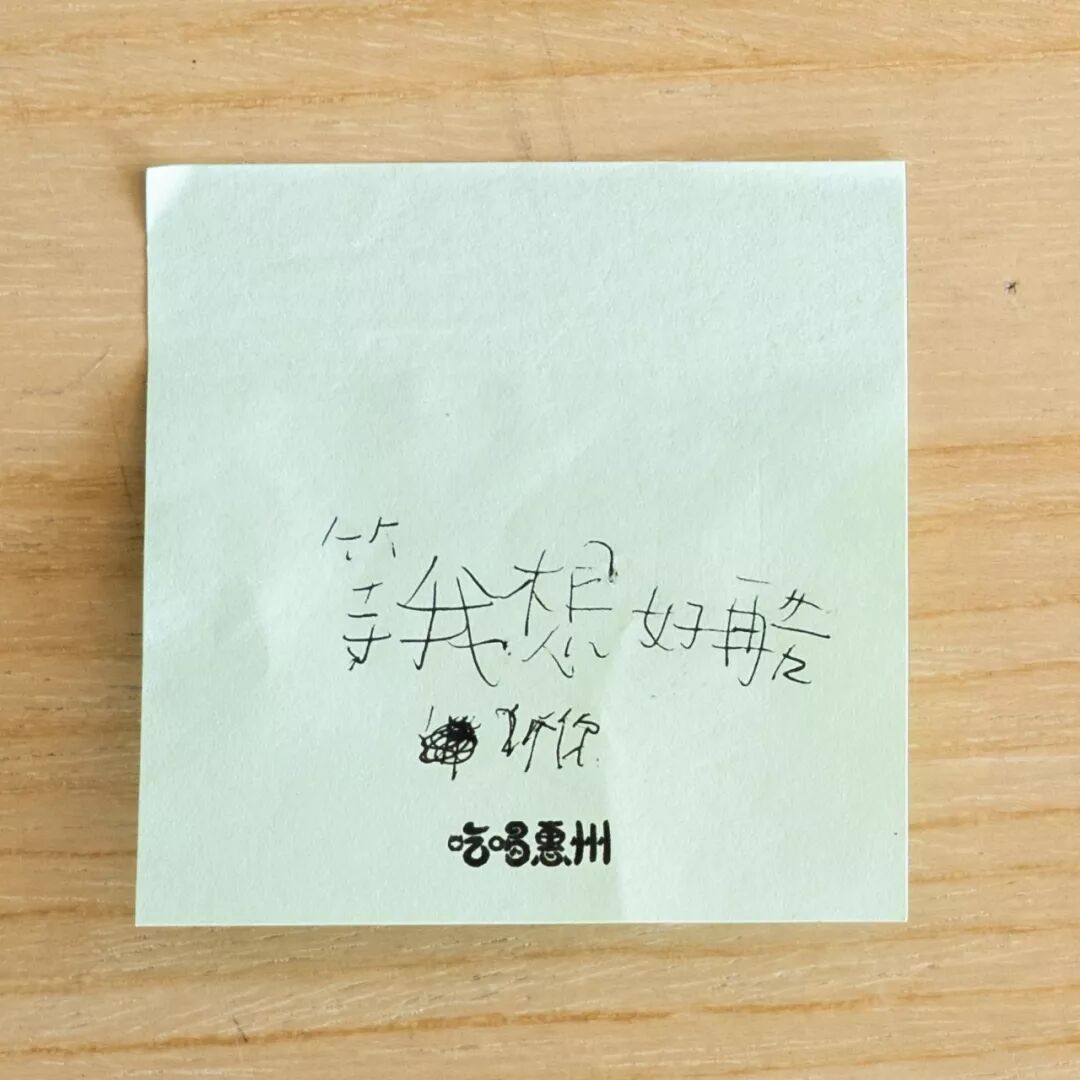 等我想好再告
诉你
吃喝惠州